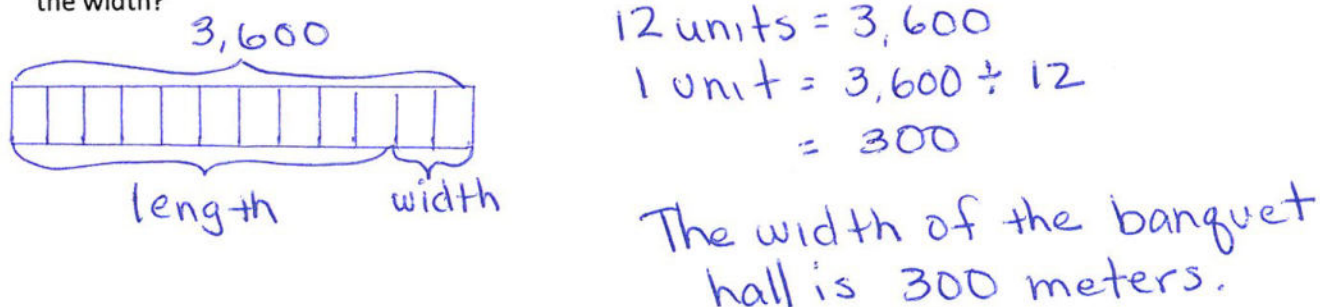 the width?
3,600
length width
12 units = 3,600
1 unit = 3,600 ÷ 12
= 300
The width of the banquet
hall is 300 meters.